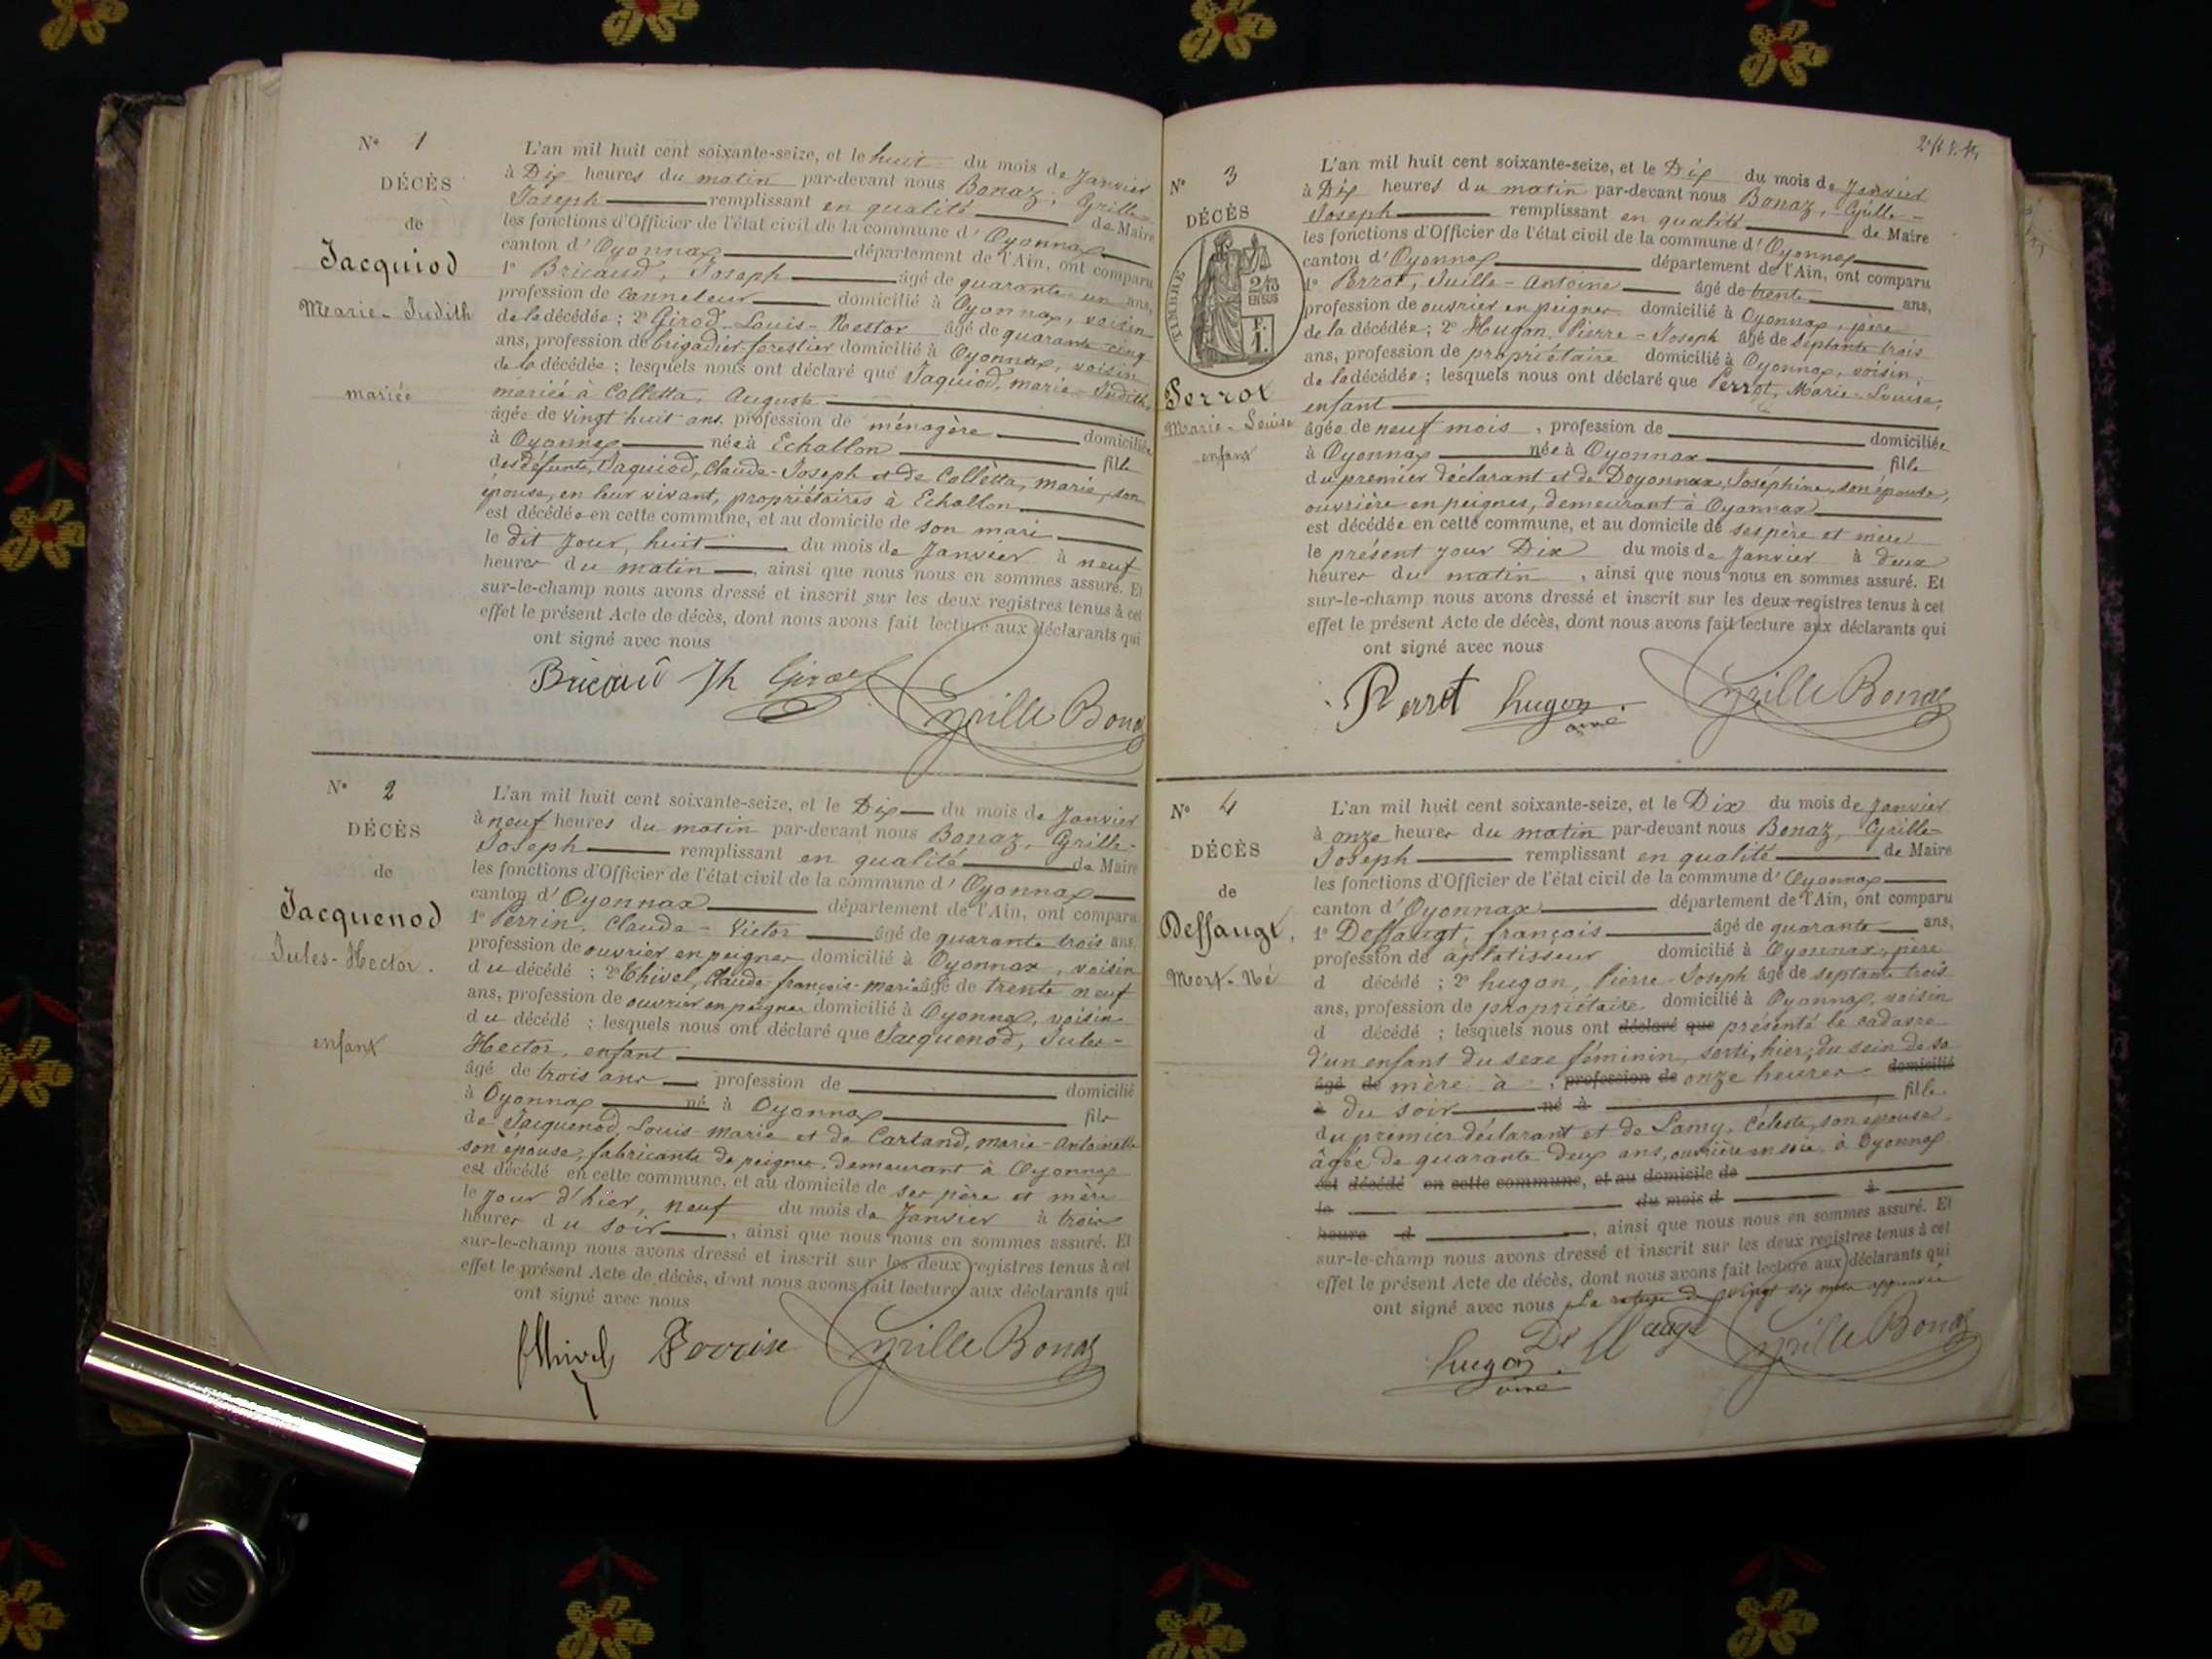 N° 1
DÉCÈS
de
Jacquiod
Marie-Judith
mariée
L'an mil huit cent soixante-seize, et le huit du mois de Janvier
à Dix heures du matin par-devant nous Bonaz, Cyrille-
Joseph remplissant en qualité de Maire
les fonctions d'Officier de l'état civil de la commune d'Oyonnax
canton d'Oyonnax département de l'Ain, ont comparu
1° Bricaud, Joseph âgé de quarante-un ans,
profession de canneleur domicilié à Oyonnax, voisin
de la décédée ; 2° Girod, Louis-Nestor âgé de quarante cinq
ans, profession de brigadier-forestier domicilié à Oyonnax, voisin
de la décédée ; lesquels nous ont déclaré que Jaquiod, marie-Judith,
mariée à Colletta, Auguste
âgée de vingt huit ans, profession de ménagère domiciliée
à Oyonnax née à Echallon fille
des défunts, Jaquiod, Claude-Joseph et de Colletta, marie, son
épouse, en leur vivant, propriétaires à Echallon
est décédée en cette commune, et au domicile de son mari
le dit jour, huit du mois de Janvier à neuf
heures du matin, ainsi que nous nous en sommes assuré. Et
sur-le-champ nous avons dressé et inscrit sur les deux registres tenus à cet
effet le présent Acte de décès, dont nous avons fait lecture aux déclarants qui
ont signé avec nous
Bricaud Jh Girod Cyrille Bonaz
N° 2
DÉCÈS
de
Jacquenod
Jules-Hector.
enfant
L'an mil huit cent soixante-seize, et le Dix du mois de Janvier
à neuf heures du matin par-devant nous Bonaz, Cyrille-
Joseph remplissant en qualité de Maire
les fonctions d'Officier de l'état civil de la commune d'Oyonnax
canton d'Oyonnax département de l'Ain, ont comparu
1° Perrin, Claude-Victor âgé de quarante trois ans,
profession de ouvrier en peignes domicilié à Oyonnax, voisin
du décédé ; 2° Chivel, Claude-françois-marie âgé de trente neuf
ans, profession de ouvrier en peignes domicilié à Oyonnax, voisin
du décédé ; lesquels nous ont déclaré que Jacquenod, Jules-
Hector, enfant
âgé de trois ans, profession de domicilié
à Oyonnax né à Oyonnax fils
de Jacquenod, Louis-Marie et de Cartand, marie-Antoinette
son épouse, fabricants de peignes, demeurant à Oyonnax
est décédé en cette commune, et au domicile de ses père et mère
le jour d'hier, neuf du mois de Janvier à trois
heures du soir, ainsi que nous nous en sommes assuré. Et
sur-le-champ nous avons dressé et inscrit sur les deux registres tenus à cet
effet le présent Acte de décès, dont nous avons fait lecture aux déclarants qui
ont signé avec nous
Chivel Perrin Cyrille Bonaz
N° 3
DÉCÈS
TIMBRE
2/10
EN SUS
F.
1.
Perrot
Marie-Louise
enfant
L'an mil huit cent soixante-seize, et le Dix du mois de Janvier
à Dix heures du matin par-devant nous Bonaz, Cyrille-
Joseph remplissant en qualité de Maire
les fonctions d'Officier de l'état civil de la commune d'Oyonnax
canton d'Oyonnax département de l'Ain, ont comparu
1° Perrot, Juille-Antoine âgé de trente ans,
profession de ouvrier en peignes domicilié à Oyonnax, père
de la décédée ; 2° Hugon, Pierre-Joseph âgé de septante trois
ans, profession de propriétaire domicilié à Oyonnax, voisin,
de la décédée ; lesquels nous ont déclaré que Perrot, Marie-Louise,
enfant
âgée de neuf mois, profession de domiciliée
à Oyonnax née à Oyonnax fille
du premier déclarant et de Doyonnax, Joséphine, son épouse,
ouvrière en peignes, demeurant à Oyonnax
est décédée en cette commune, et au domicile de ses père et mère
le présent jour Dix du mois de Janvier à deux
heures du matin, ainsi que nous nous en sommes assuré. Et
sur-le-champ nous avons dressé et inscrit sur les deux registres tenus à cet
effet le présent Acte de décès, dont nous avons fait lecture aux déclarants qui
ont signé avec nous
Perrot hugon ainé Cyrille Bonaz
N° 4
DÉCÈS
de
Deffaugt,
Mort-Né
L'an mil huit cent soixante-seize, et le Dix du mois de Janvier
à onze heures du matin par-devant nous Bonaz, Cyrille-
Joseph remplissant en qualité de Maire
les fonctions d'Officier de l'état civil de la commune d'Oyonnax
canton d'Oyonnax département de l'Ain, ont comparu
1° Deffaugt, françois âgé de quarante ans,
profession de aplatisseur domicilié à Oyonnax, père
d décédé ; 2° hugon, Pierre-Joseph âgé de septante trois
ans, profession de propriétaire domicilié à Oyonnax, voisin
d décédé ; lesquels nous ont déclaré que présenté le cadavre
d'un enfant du sexe féminin, sorti, hier, du sein de sa
âgé de mère à, profession de onze heures domicilié
à du soir né à fille
du premier déclarant et de Lamy, Céleste, son épouse
âgée de quarante deux ans, ouvrière en soie à Oyonnax
est décédé en cette commune, et au domicile de
le du mois d à
heure d, ainsi que nous nous en sommes assuré. Et
sur-le-champ nous avons dressé et inscrit sur les deux registres tenus à cet
effet le présent Acte de décès, dont nous avons fait lecture aux déclarants qui
ont signé avec nous La rature de vingt six mots approuvée
hugon ainé Deffaugt Cyrille Bonaz